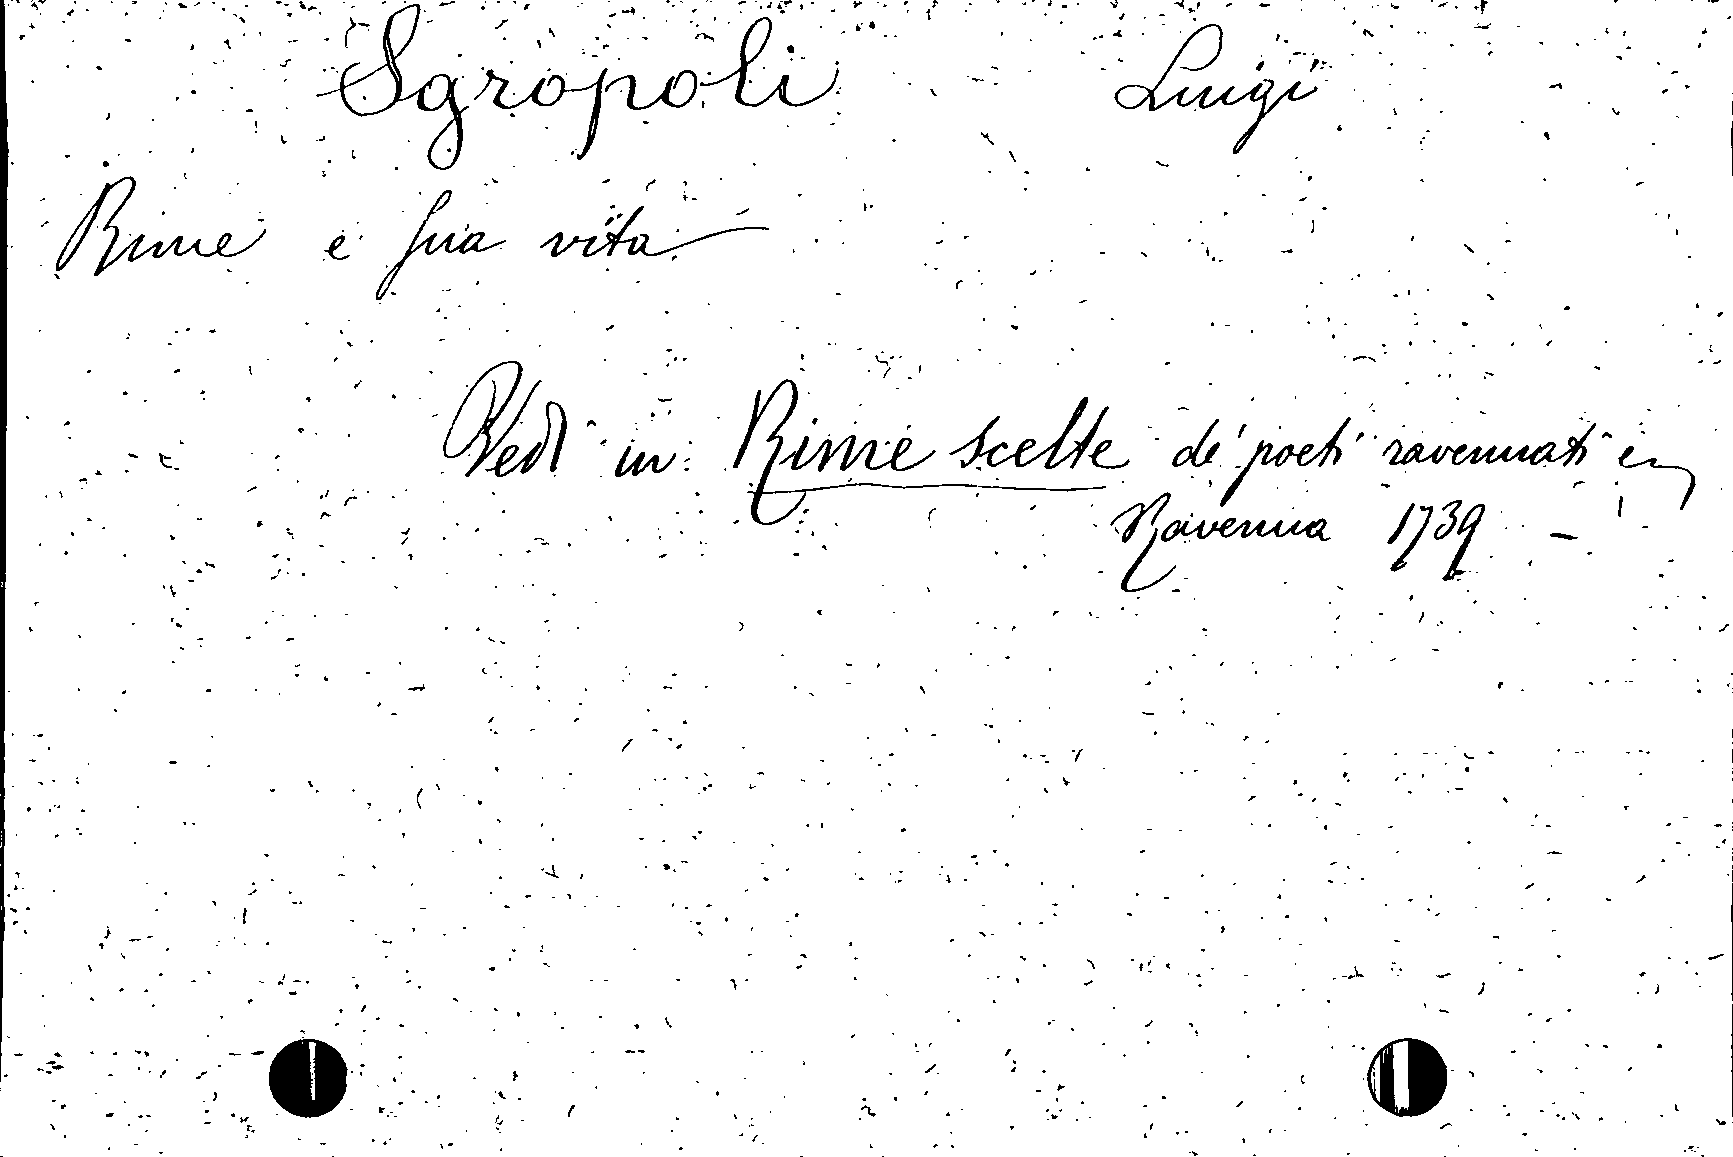 Sgropoli Luigi
Rime e sua vita
Vedi in Rime scelte de' poeti ravennati
Ravenna 1739 -